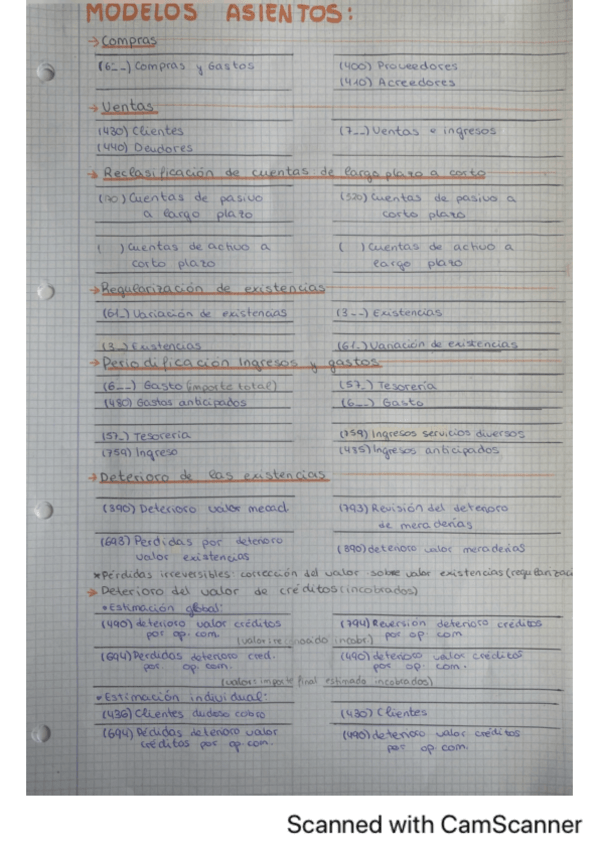 MODELOS ASIENTOS:
→ Compras
(6--) Compras y Gastos (400) Proveedores
(410) Acreedores
→ Ventas
(430) Clientes (7--) Ventas e ingresos
(440) Deudores
→ Reclasificación de cuentas de largo plazo a corto
(170) Cuentas de pasivo (520) Cuentas de pasivo a
a largo plazo corto plazo
( ) Cuentas de activo a ( ) Cuentas de activo a
corto plazo largo plazo
→ Regularización de existencias
(61-) Variación de existencias (3--) Existencias
(3--) Existencias (61-) Variación de existencias
→ Periodificación Ingresos y gastos
(6--) Gasto (importe total) (57-) Tesorería
(480) Gastos anticipados (6--) Gasto
(57-) Tesorería (759) Ingresos servicios diversos
(759) Ingreso (485) Ingresos anticipados
→ Deterioro de las existencias
(390) Deterioro valor mercad. (793) Revisión del deterioro
de mercaderías
(693) Perdidas por deterioro
valor existencias (390) deterioro valor mercaderías
*Pérdidas irreversibles: corrección del valor sobre valor existencias (regularizac
→ Deterioro del valor de créditos (incobrados)
• Estimación global:
(490) deterioro valor créditos (794) Reversión deterioro créditos
por op. com. (valor reconocido incobr.) por op. com
(694) Perdidas deterioro cred. (490) deterioro valor créditos
por. op. com. por op. com.
(valor: importe final estimado incobrados)
• Estimación individual:
(436) Clientes dudoso cobro (430) Clientes
(694) Pérdidas deterioro valor (490) deterioro valor créditos
créditos por op. com. por op. com.
Scanned with CamScanner